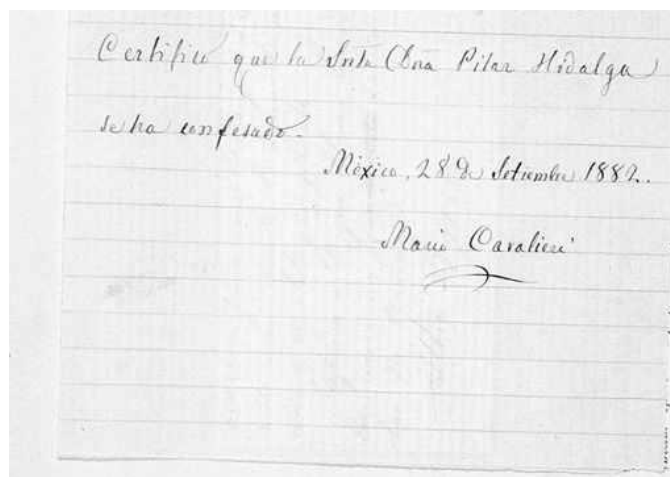 Certifico que la Srita Dña Pilar Hidalga
se ha confesado.
México, 28 de Setiembre 1882.
Mario Cavalieri